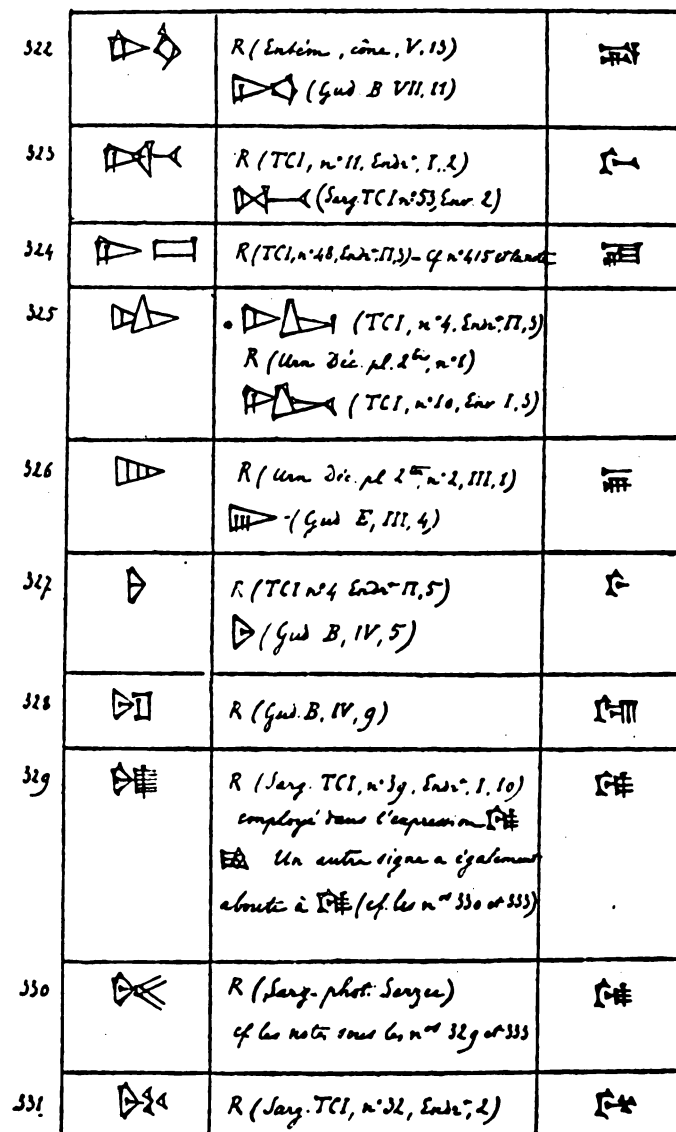 322 R (Entém, cône, V, 13)
(Gud B VII, 11)
323 R (TCI, n° 11, Endrt, I, 2)
(Sarg. TCI n° 53, Env. 2)
324 R (TCI, n° 48, Endrt II, 3) – Cf n° 415 et la note
325 (TCI, n° 4, Endrt II, 3)
R (Urn Déc. pl. 2bis, n° 1)
(TCI, n° 10, Env I, 3)
326 R (Urn Déc. pl 2ter, n° 2, III, 1)
(Gud E, III, 4)
327 R (TCI n° 4 Endrt II, 5)
(Gud B, IV, 5)
328 R (Gud. B, IV, 9)
329 R (Sarg. TCI, n° 39, Endrt, I, 10)
employé dans l'expression
Un autre signe a également
abouti à (cf. les nos 330 et 333)
330 R (Sarg. phot. Sarzec)
cf les notes sous les nos 329 et 333
331 R (Sarg. TCI, n° 32, Endrt, 2)